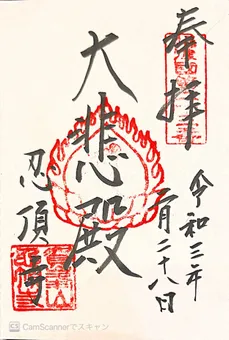 奉拝
令和三年
二月二十八日
大悲殿
忍頂寺
CamScannerでスキャン